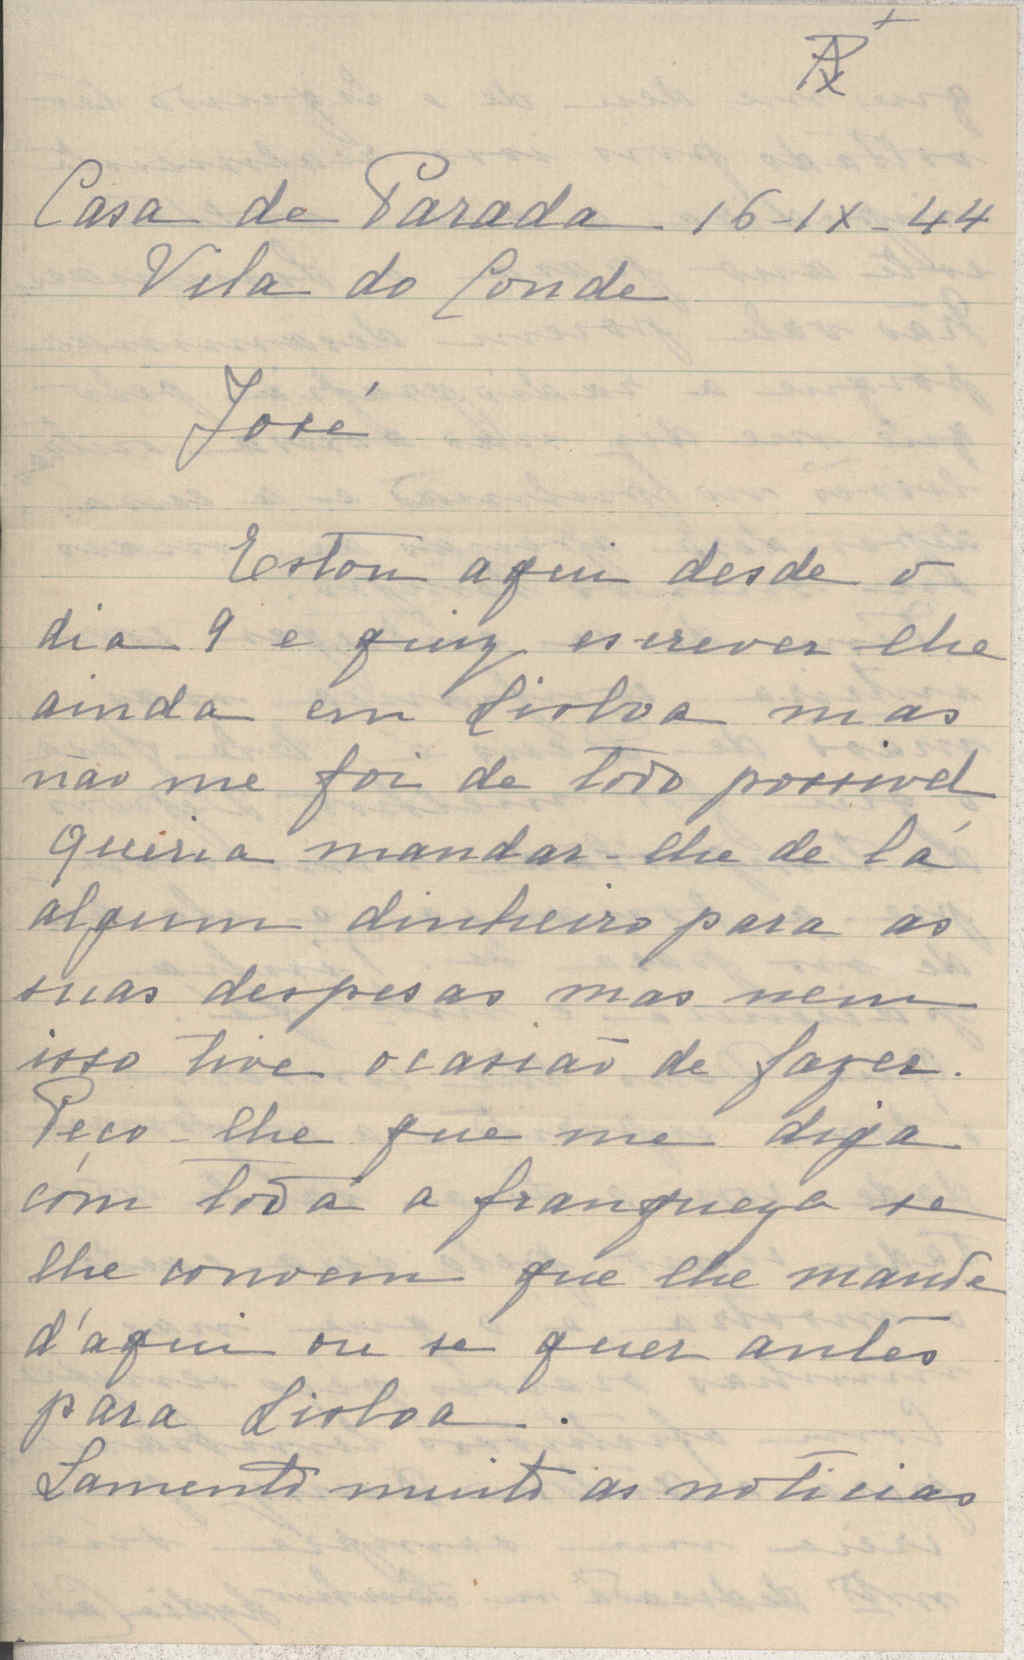 Casa de Parada. 16-IX-44
Vila do Conde
José
Estou aqui desde o
dia 9 e quiz escrever-lhe
ainda em Lisboa mas
não me foi de todo possivel
queria mandar-lhe de lá
algum dinheiro para as
suas despesas mas nem
isso tive ocasião de fazer.
Peço-lhe que me diga
cóm toda a franqueza se
lhe convem que lhe mande
d'aqui ou se quer antes
para Lisboa.
Lamento muito as noticias